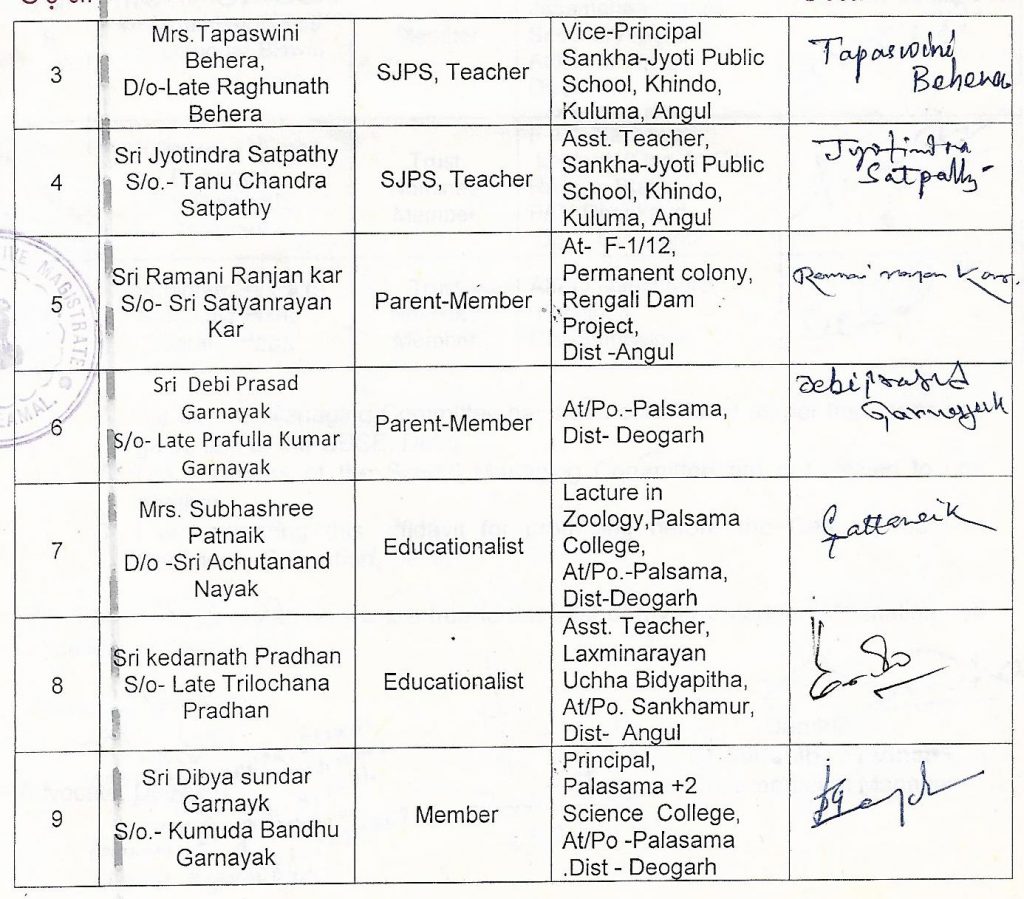 3
Mrs.Tapaswini
Behera,
D/o-Late Raghunath
Behera
SJPS, Teacher
Vice-Principal
Sankha-Jyoti Public
School, Khindo,
Kuluma, Angul
Tapaswini
Behera
4
Sri Jyotindra Satpathy
S/o.- Tanu Chandra
Satpathy
SJPS, Teacher
Asst. Teacher,
Sankha-Jyoti Public
School, Khindo,
Kuluma, Angul
Jyotindra
Satpathy
5
Sri Ramani Ranjan kar
S/o- Sri Satyanrayan
Kar
Parent-Member
At- F-1/12,
Permanent colony,
Rengali Dam
Project,
Dist -Angul
Kar
6
Sri Debi Prasad
Garnayak
S/o- Late Prafulla Kumar
Garnayak
Parent-Member
At/Po.-Palsama,
Dist- Deogarh
Debiprasad
Garnayak
7
Mrs. Subhashree
Patnaik
D/o -Sri Achutanand
Nayak
Educationalist
Lacture in
Zoology,Palsama
College,
At/Po.-Palsama,
Dist-Deogarh
8
Sri kedarnath Pradhan
S/o- Late Trilochana
Pradhan
Educationalist
Asst. Teacher,
Laxminarayan
Uchha Bidyapitha,
At/Po. Sankhamur,
Dist- Angul
9
Sri Dibya sundar
Garnayk
S/o.- Kumuda Bandhu
Garnayak
Member
Principal,
Palasama +2
Science College,
At/Po -Palasama
.Dist - Deogarh
MAGISTRATE